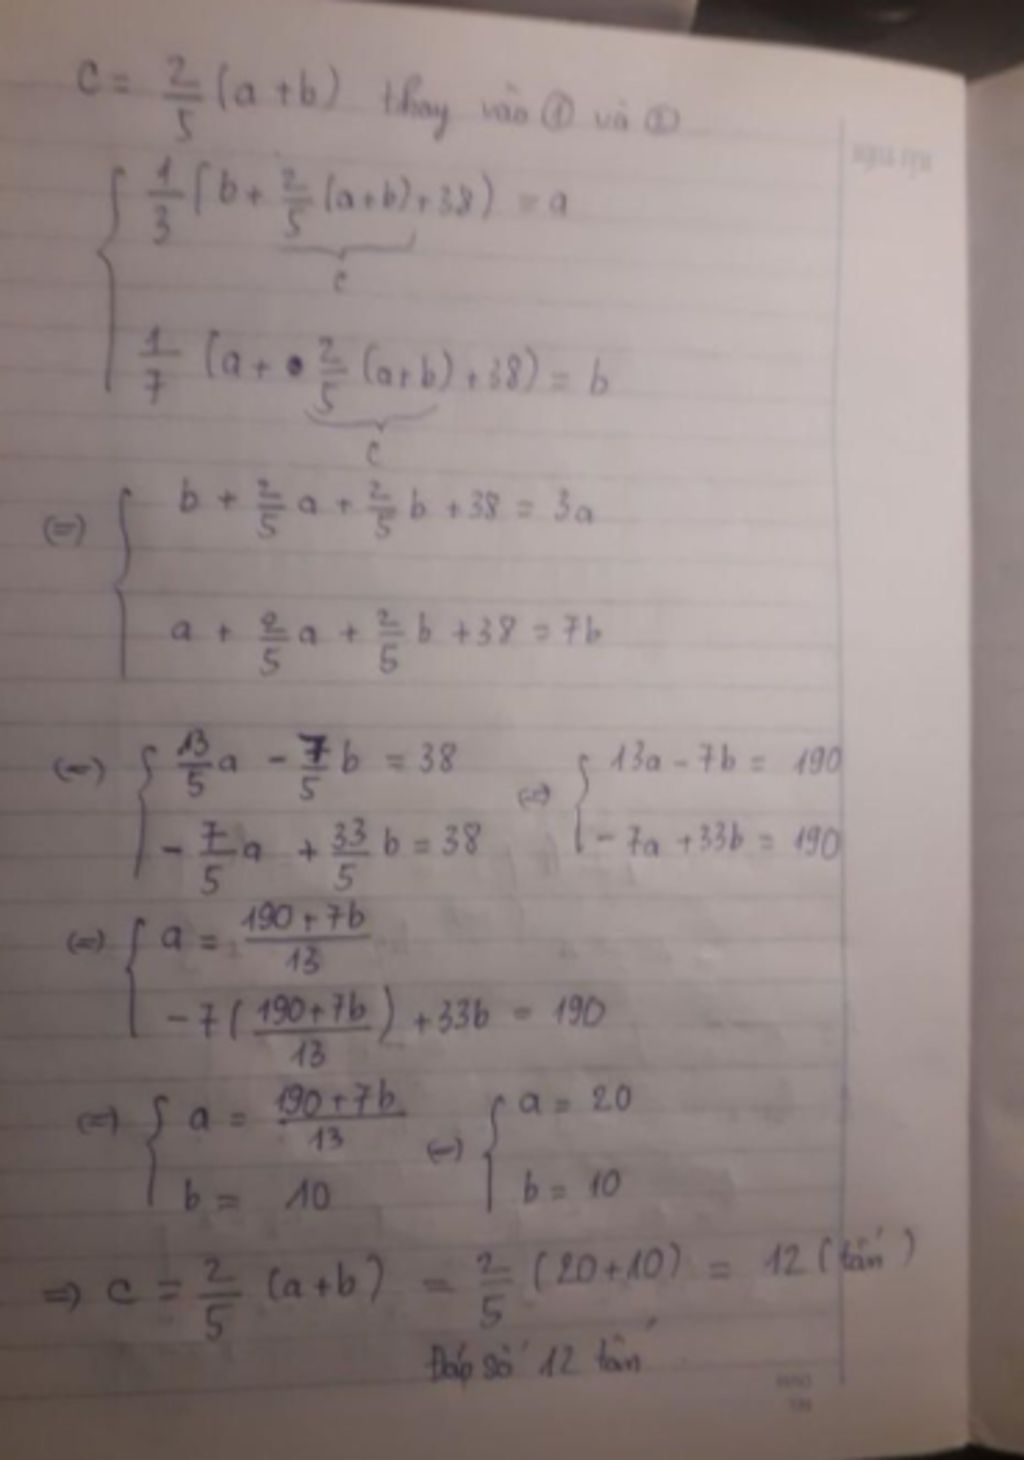 c = 2/5 (a+b) thay vào ① và ②
{ 1/3 (b + 2/5 (a+b) + 38) = a
c
1/7 (a + 2/5 (a+b) + 38) = b
c
(=) { b + 2/5 a + 2/5 b + 38 = 3a
a + 2/5 a + 2/5 b + 38 = 7b
(=) { 13/5 a - 7/5 b = 38 (=) { 13a - 7b = 190
- 7/5 a + 33/5 b = 38 - 7a + 33b = 190
(=) { a = (190+7b)/13
- 7 ( (190+7b)/13 ) + 33b = 190
(=) { a = (190+7b)/13 (=) { a = 20
b = 10 b = 10
=> c = 2/5 (a+b) = 2/5 (20+10) = 12 (tấn)
Đáp số 12 tấn